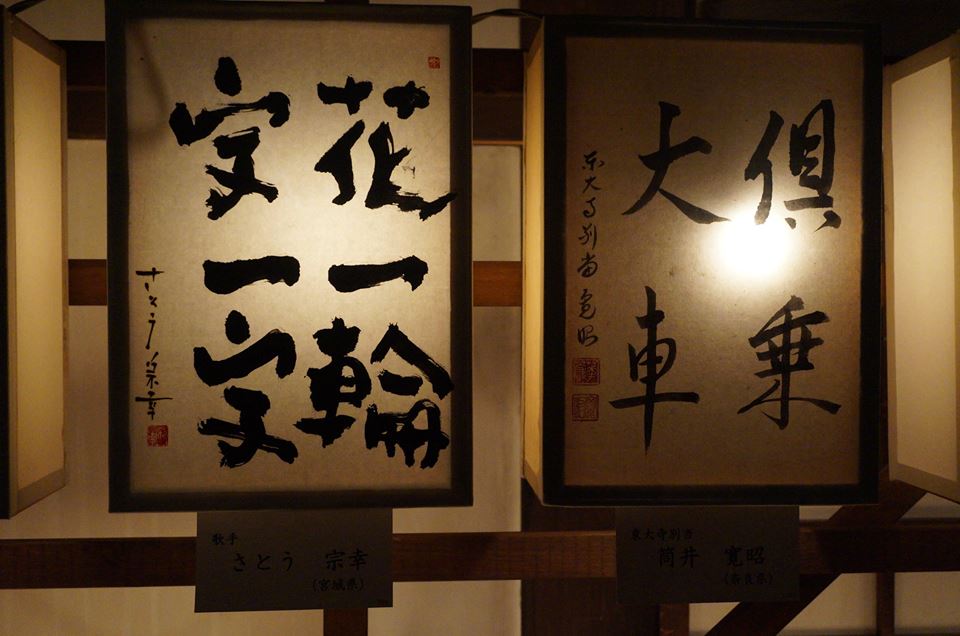 花一輪
さとう宗幸
倶乗
大車
東大寺別当 寛昭
歌手
さとう 宗幸
(宮城県)
東大寺別当
筒井 寛昭
(奈良県)